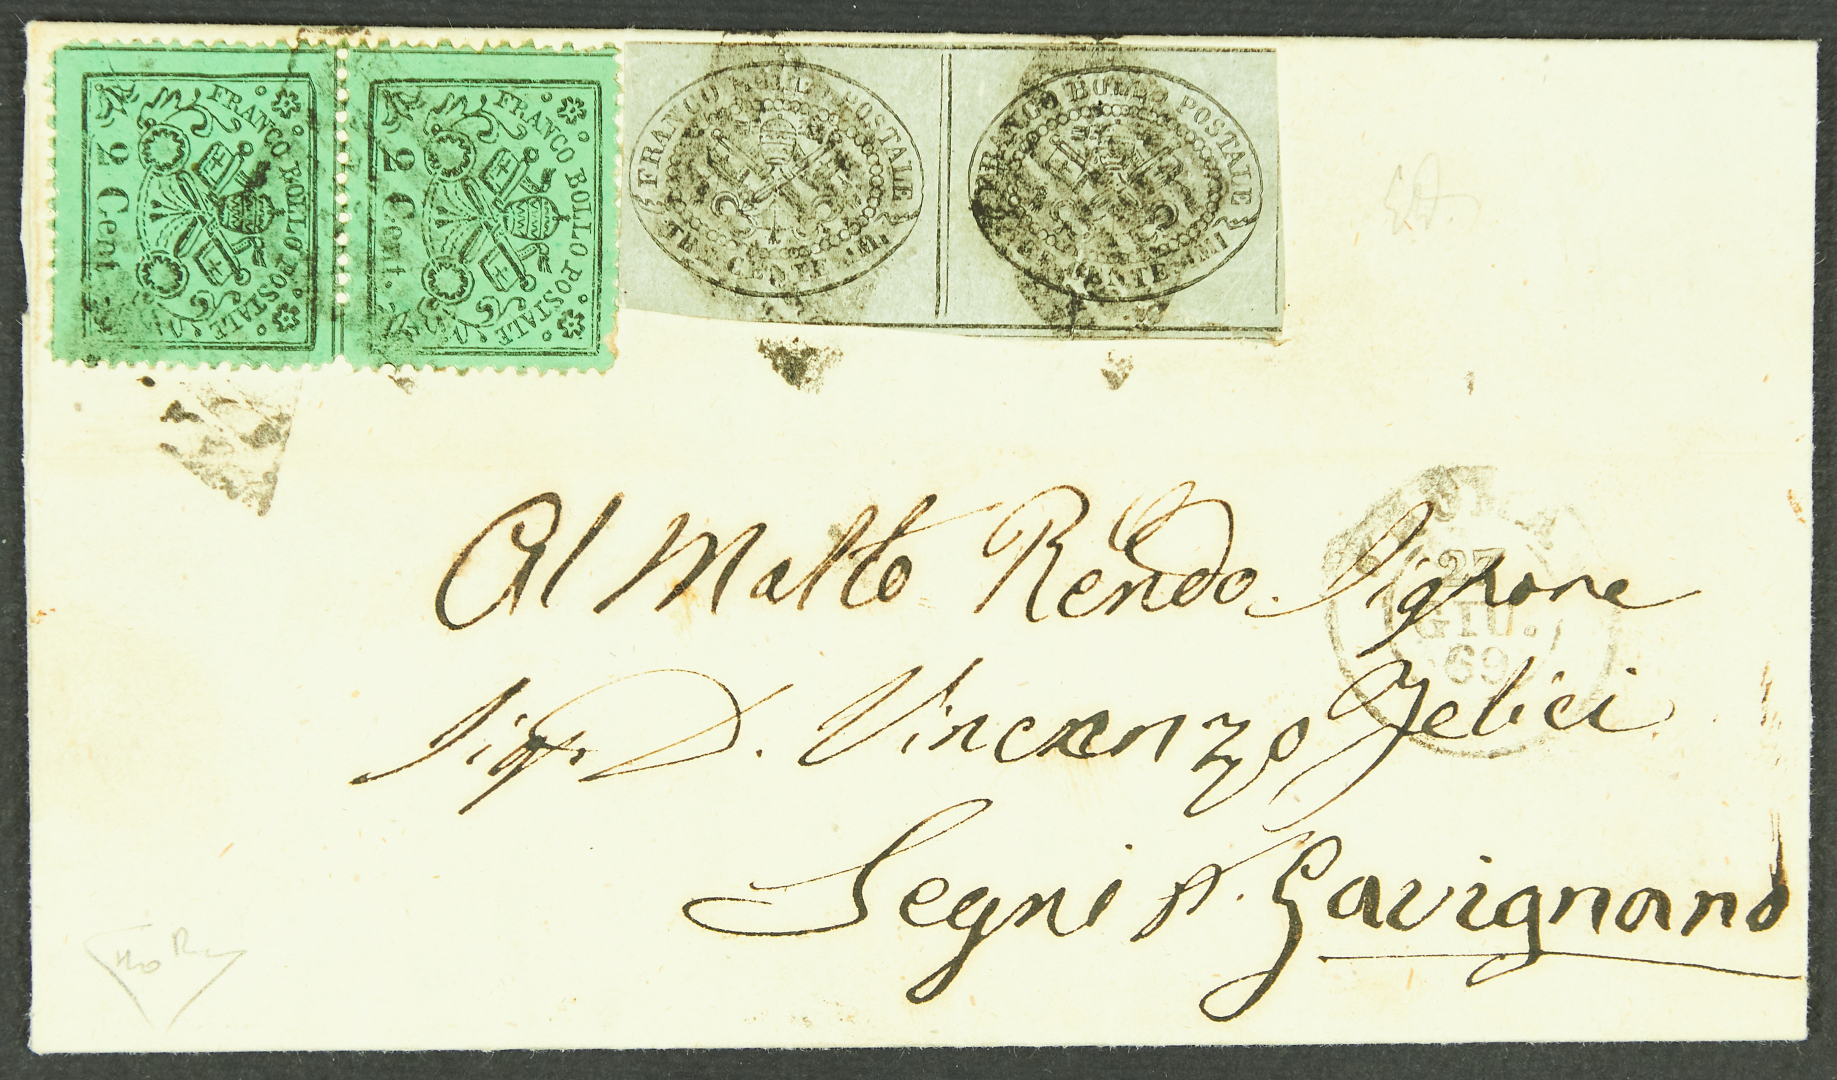 FRANCO BOLLO POSTALE
2 Cent.
FRANCO BOLLO POSTALE
2 Cent.
FRANCO POSTALE
FRANCO BOLLO POSTALE
ROMA
27
GIU.
69
Al Molto Rendo. Signore
Sigr. D. Vincenzo Felici
Segni p. Gavignano